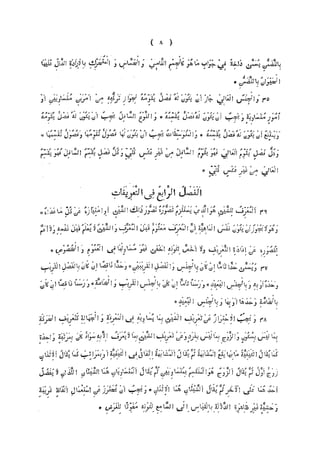 ( ٨ )
بالتضمن يسمى داخلا في جواب ما هو كالجسم النامي والحساس والمتحرك بالارادة الدال عليها
الحيوان بالتضمن *
٣٥ والجنس العالي جاز ان يكون له فصل يقومه لجواز تركبه من امرين متساويين او
امور متساوية ويجب ان يكون له فصل يقسمه * والنوع السافل يجب ان يكون له فصل يقومه
ويمتنع ان يكون له فصل يقسمه * والمتوسطات يجب ان يكون لها فصول تقومها وفصول تقسمها *
وكل فصل يقوم العالي فهو يقوم السافل من غير عكس كلي * وكل فصل يقسم السافل فهو يقسم
العالي من غير عكس كلي *
الفصل الرابع في التعريفات
٣٦ المعرف للشيئ هو الذي يستلزم تصوره تصور ذلك الشيئ او امتيازه عن كل ما عداه *
وهو لا يجوز ان يكون نفس الماهية لان المعرف معلوم قبل المعرف والشيئ لا يعلم قبل نفسه ولا اعم
لقصوره عن افادة التعريف ولا اخص لكونه اخفى فهو مساو لها في العموم والخصوص *
٣٧ ويسمى حدا تاما ان كان بالجنس والفصل القريبين * وحدا ناقصا ان كان بالفصل القريب
وحده او به وبالجنس البعيد * ورسما تاما ان كان بالجنس القريب والخاصة * ورسما ناقصا ان كان
بالخاصة وحدها او بها وبالجنس البعيد *
٣٨ ويجب الاحتراز عن تعريف الشيئ بما يساويه في المعرفة والجهالة كتعريف الحركة
بما ليس بسكون والزوج بما ليس بفرد وعن تعريف الشيئ بما لا يعرف الا به سواء كان بمرتبة واحدة
كما يقال الكيفية ما بها يقع المشابهة ثم يقال المشابهة اتفاق في الكيفية او بمراتب كما يقال الاثنان
زوج اول ثم يقال الزوج هو المنقسم بمتساويين ثم يقال المتساويان هما الشيئان اللذان لا يفضل
احدهما على الاخر ثم يقال الشيئان هما الاثنان * ويجب ان يحترز عن استعمال الفاظ غريبة
وحشية غير ظاهرة الدلالة بالقياس الى السامع لكونه مفوتا للغرض *